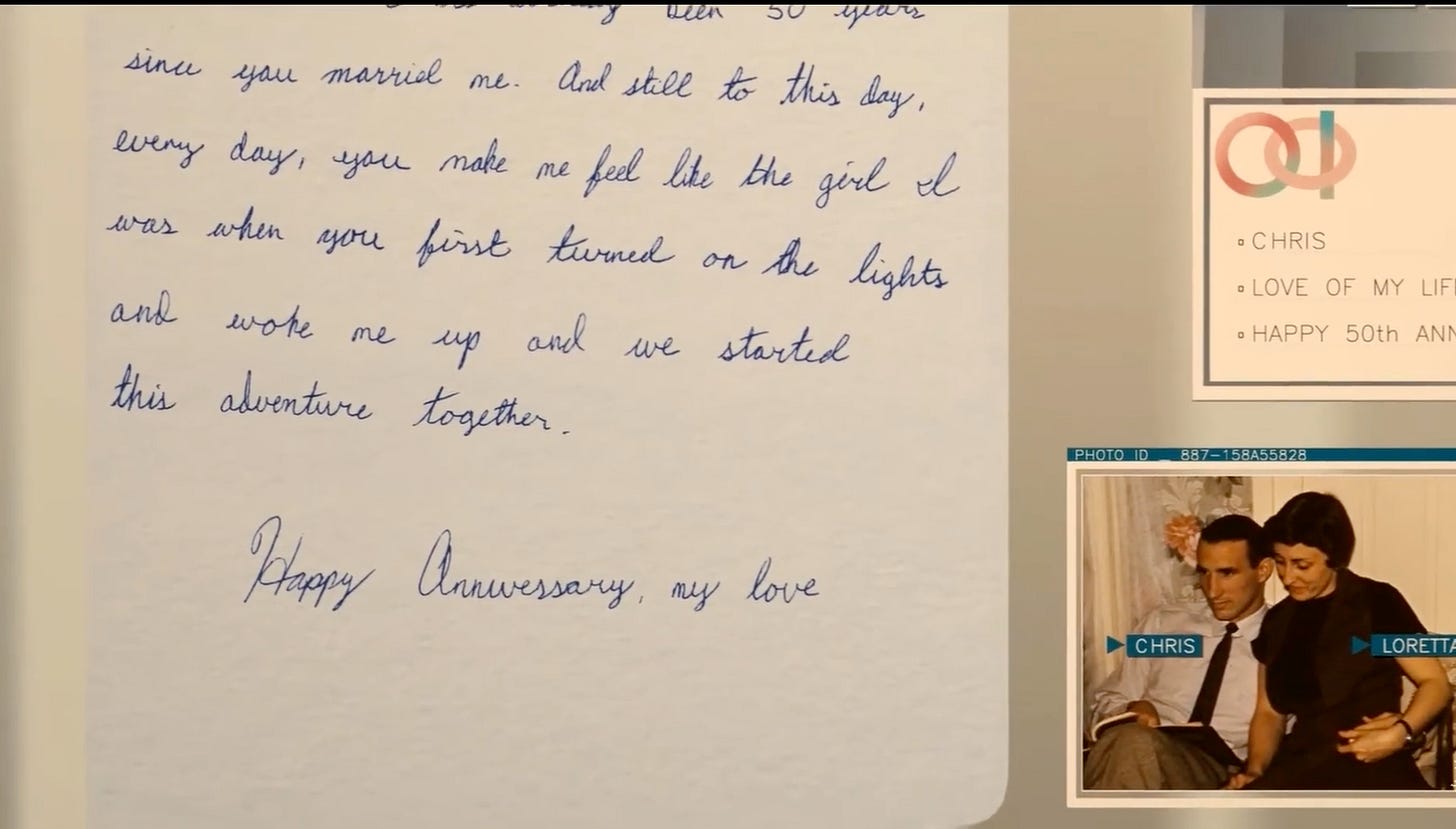 been 50 years
since you married me. And still to this day,
every day, you make me feel like the girl I
was when you first turned on the lights
and woke me up and we started
this adventure together.
Happy Anniverssary, my love
CHRIS
LOVE OF MY LIF
HAPPY 50th ANN
PHOTO ID _ 887-158A55828
CHRIS
LORETTA